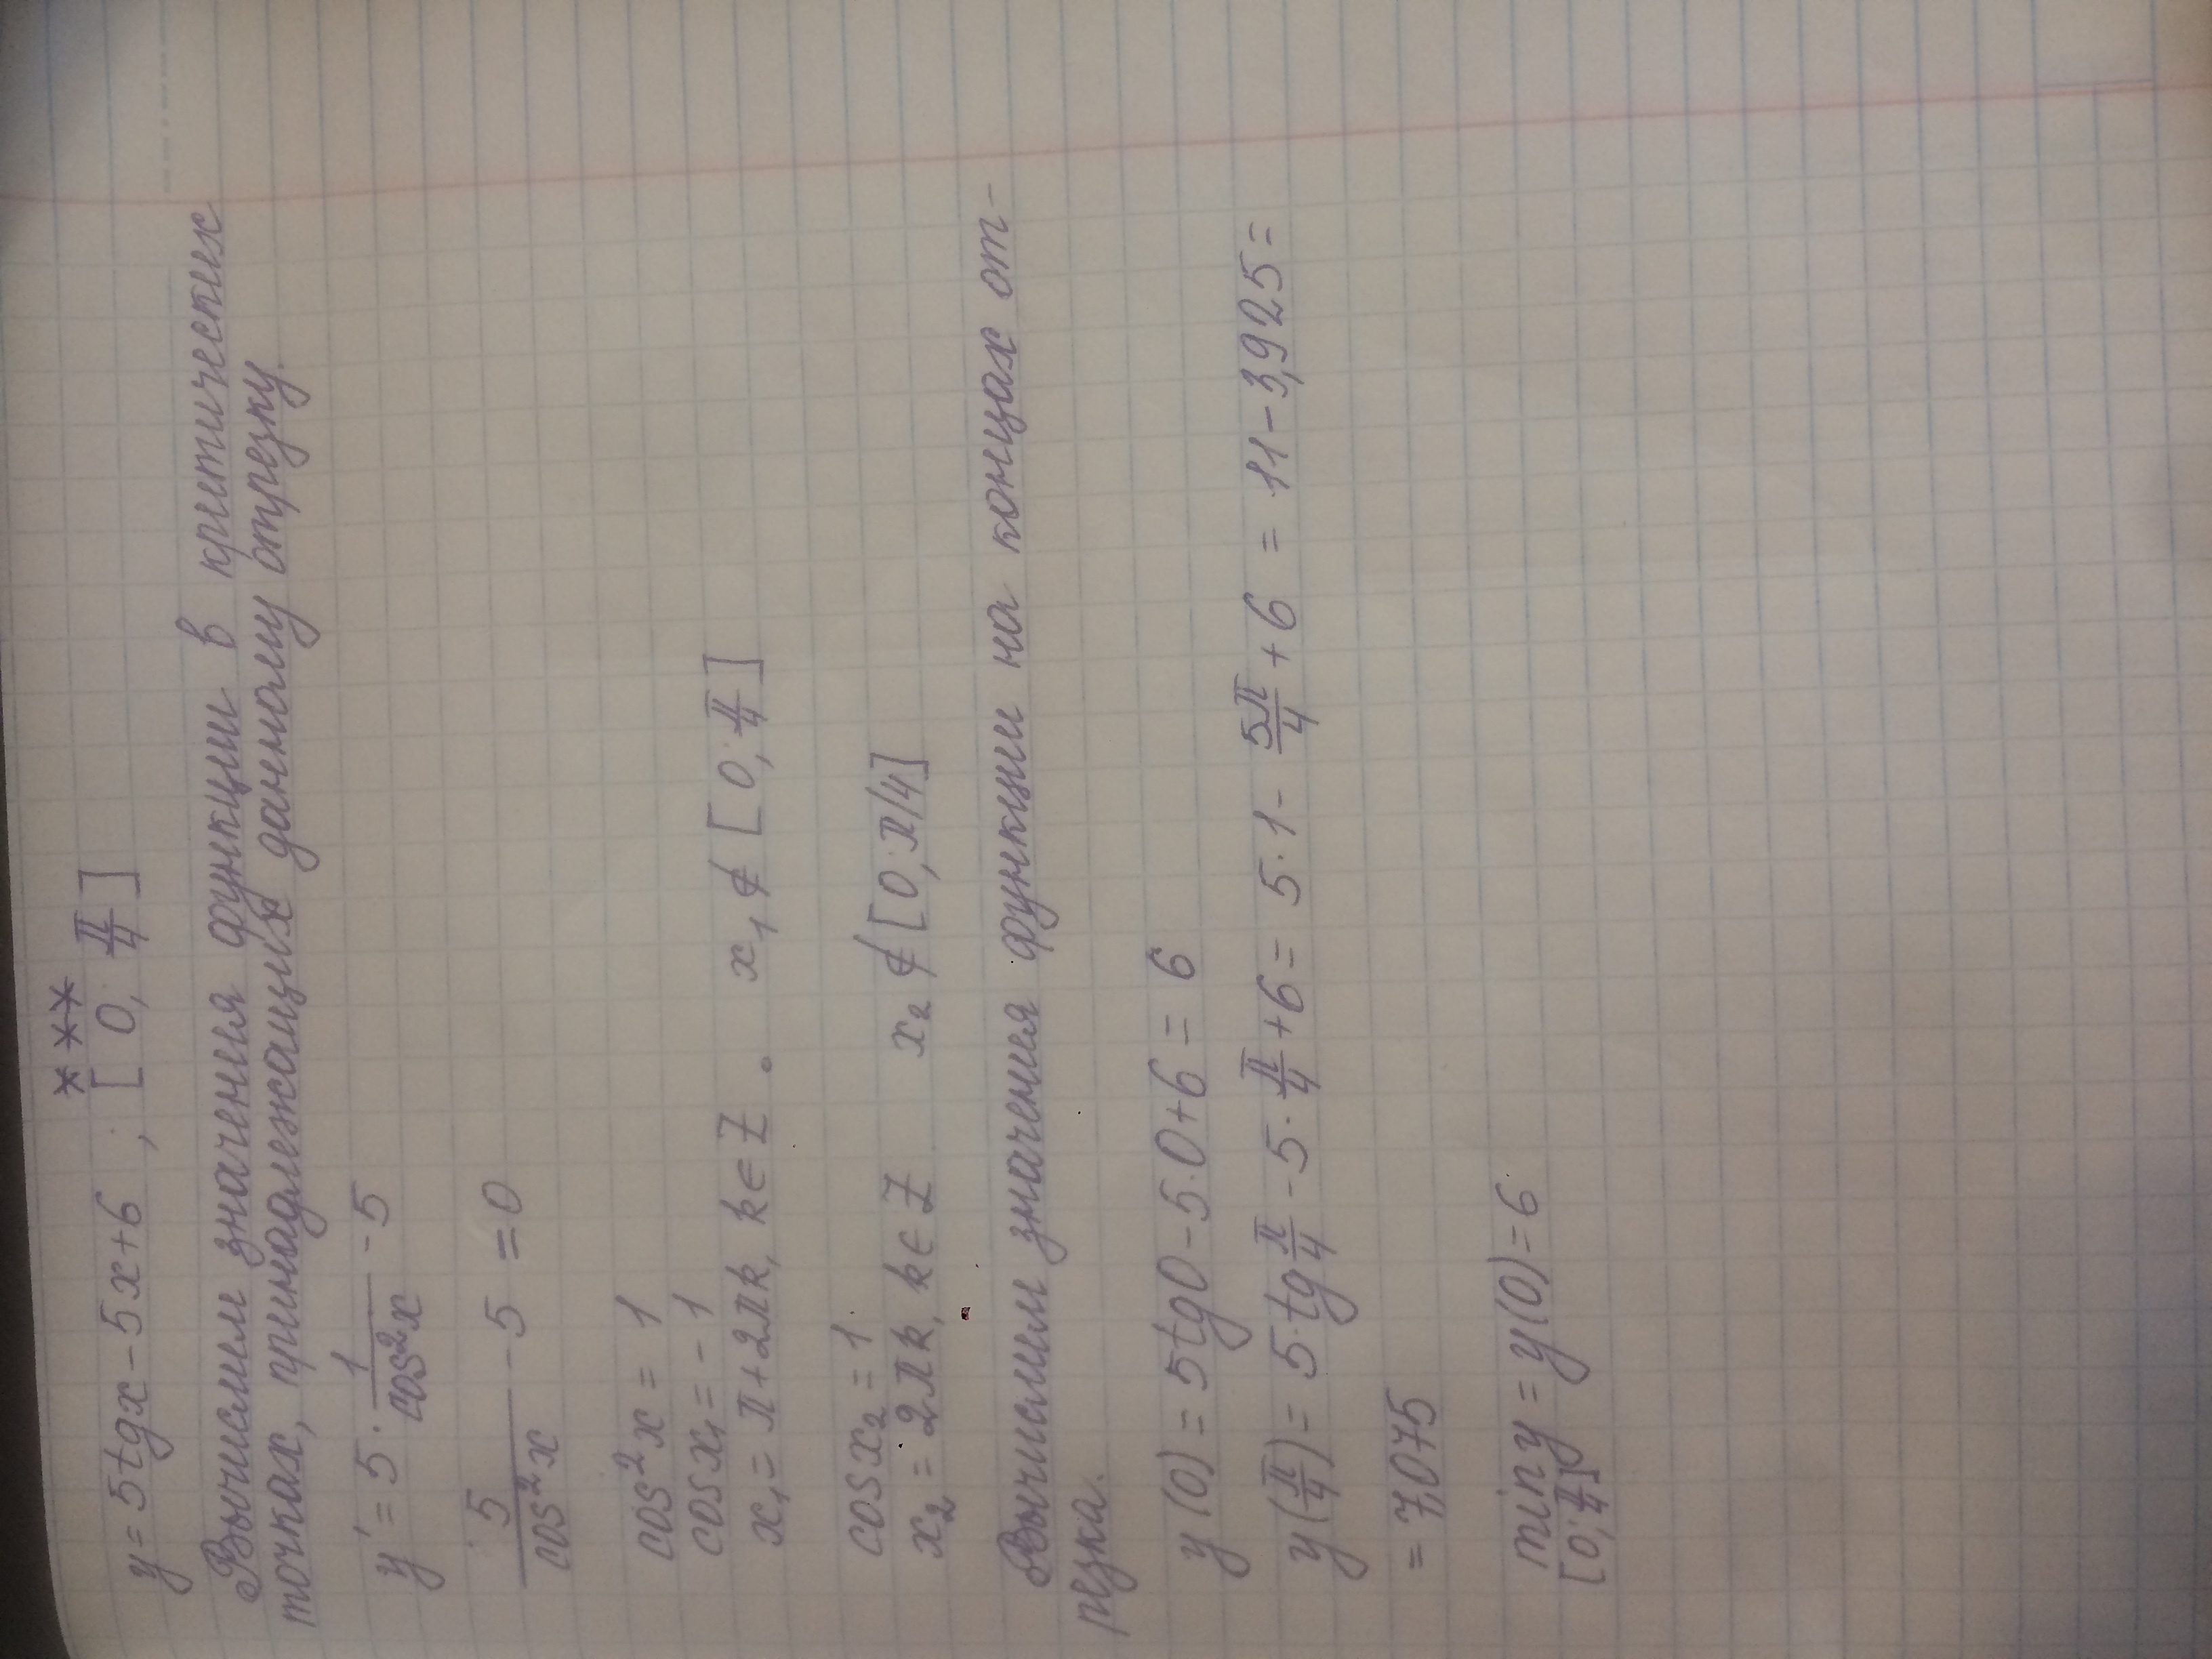 * * *
y = 5tgx - 5x + 6 ; [0; π/4]
Вычислим значения функции в критических
точках, принадлежащих данному отрезку.
y' = 5 · 1/cos²x - 5
5/cos²x - 5 = 0
cos²x = 1
cosx₁ = -1
x₁ = π + 2πk, k ∈ Z . x₁ ∉ [0; π/4]
cosx₂ = 1
x₂ = 2πk, k ∈ Z x₂ ∉ [0; π/4]
Вычислим значения функции на концах от-
резка.
y(0) = 5tg0 - 5·0 + 6 = 6
y(π/4) = 5·tg π/4 - 5· π/4 + 6 = 5·1 - 5π/4 + 6 = 11 - 3,925 =
= 7,075
min y = y(0) = 6
[0; π/4]